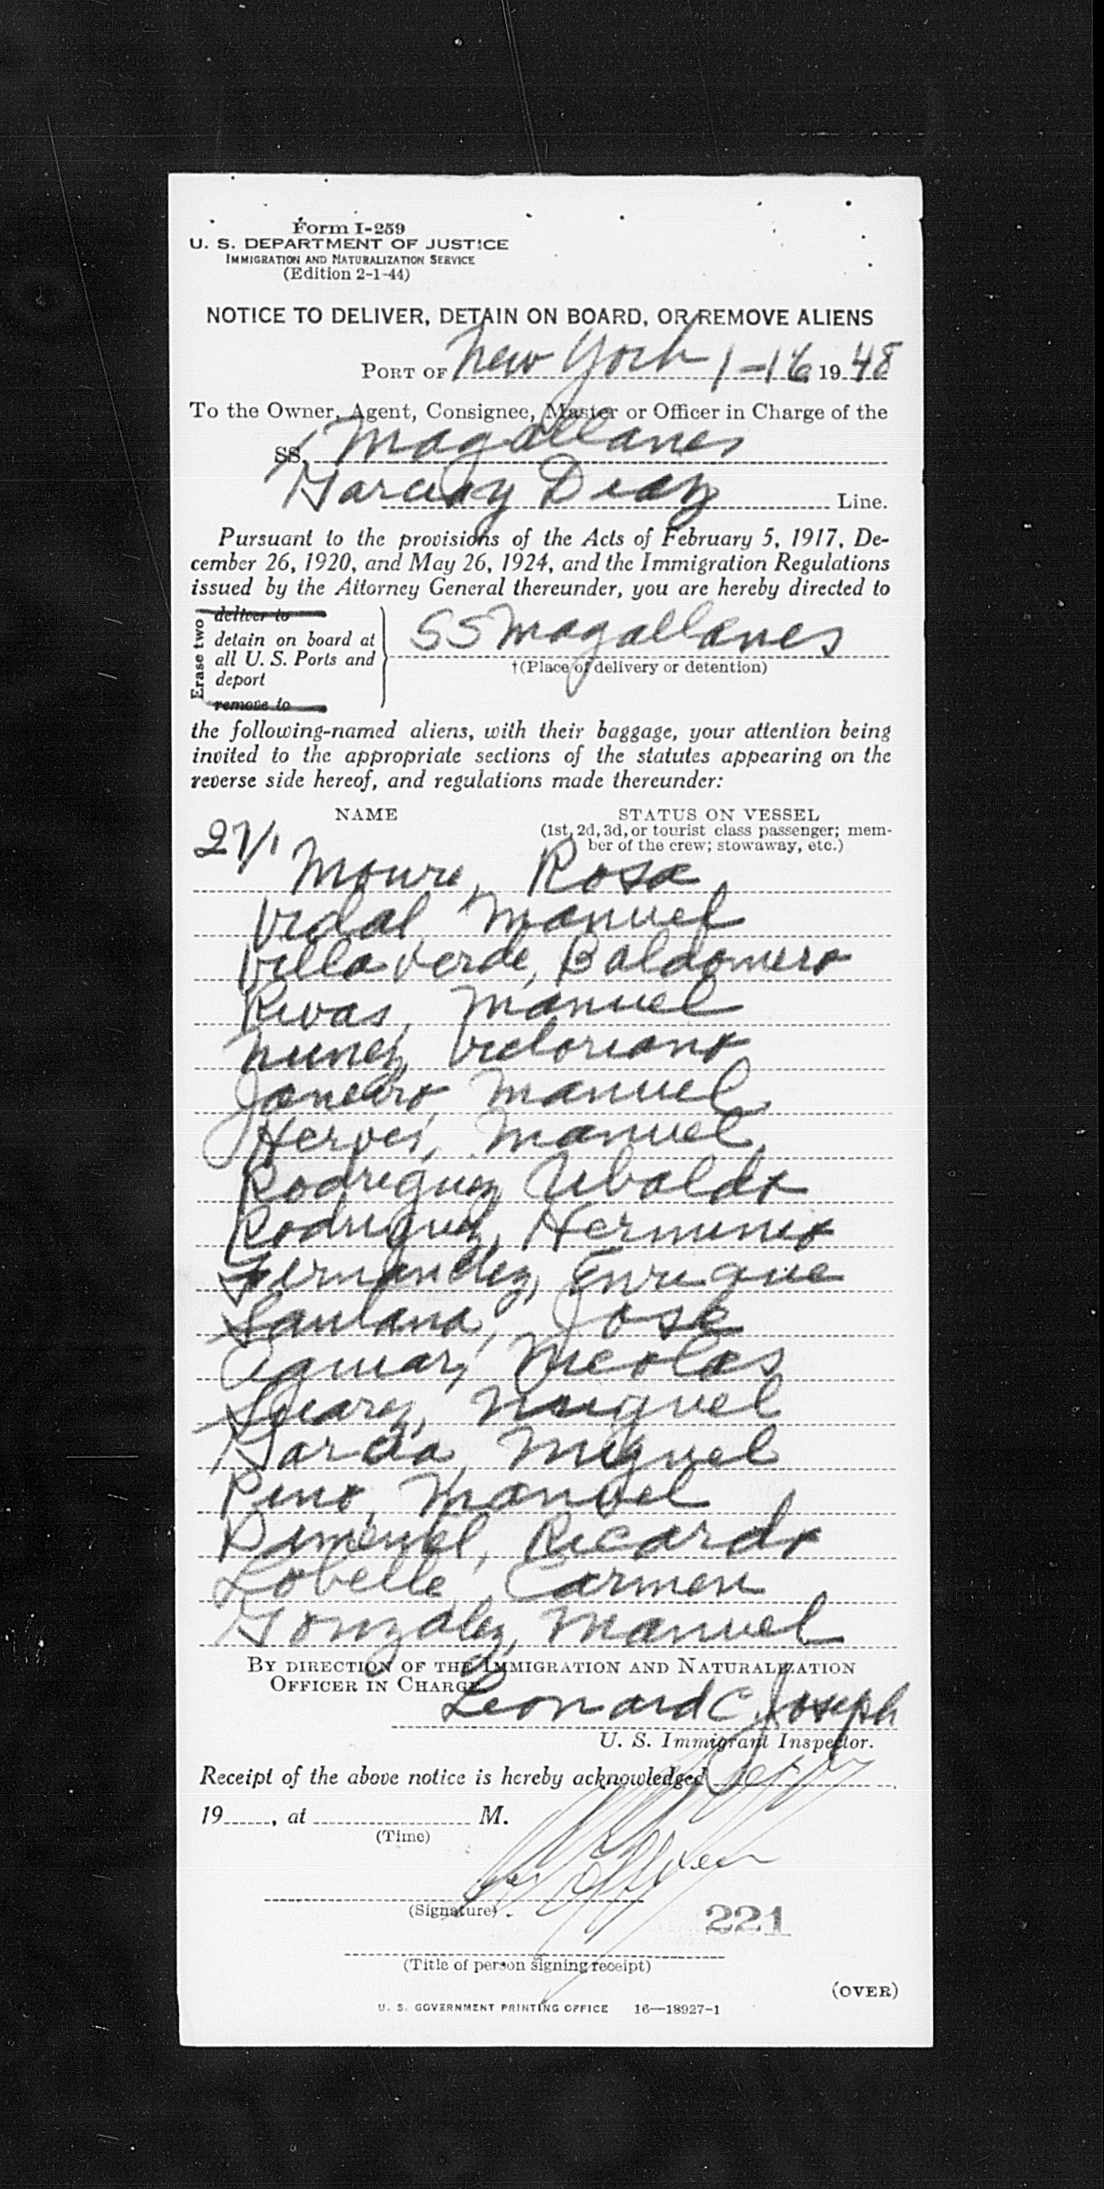 Form I-259
U. S. DEPARTMENT OF JUSTICE
IMMIGRATION AND NATURALIZATION SERVICE
(Edition 2-1-44)
NOTICE TO DELIVER, DETAIN ON BOARD, OR REMOVE ALIENS
PORT OF New York 1-16 1948
To the Owner, Agent, Consignee, Master or Officer in Charge of the
SS Magallanes
Garcia y Diaz Line.
Pursuant to the provisions of the Acts of February 5, 1917, De-
cember 26, 1920, and May 26, 1924, and the Immigration Regulations
issued by the Attorney General thereunder, you are hereby directed to
Erase two
deliver to
detain on board at
all U. S. Ports and
deport
remove to
SS Magallanes
†(Place of delivery or detention)
the following-named aliens, with their baggage, your attention being
invited to the appropriate sections of the statutes appearing on the
reverse side hereof, and regulations made thereunder:
NAME STATUS ON VESSEL
(1st, 2d, 3d, or tourist class passenger; mem-
ber of the crew; stowaway, etc.)
27/1 Moure, Rosa
Vidal, Manuel
Villaverde, Baldomero
Rivas, Manuel
Nunez, Victoriano
Janeiro, Manuel
Herves, Manuel
Rodriguez, Ubaldo
Rodriguez, Herminio
Fernandez, Enrique
Santana, Jose
Aguiar, Nicolas
Suarez, Miguel
Garcia, Miguel
Pino, Manuel
Pimentel, Ricardo
Lobelle, Carmen
Gonzalez, Manuel
BY DIRECTION OF THE IMMIGRATION AND NATURALIZATION
OFFICER IN CHARGE.
Leonard C. Joseph
U. S. Immigrant Inspector.
Receipt of the above notice is hereby acknowledged
19 , at M.
(Time)
(Signature)
221
(Title of person signing receipt)
(OVER)
U. S. GOVERNMENT PRINTING OFFICE 16—18927-1